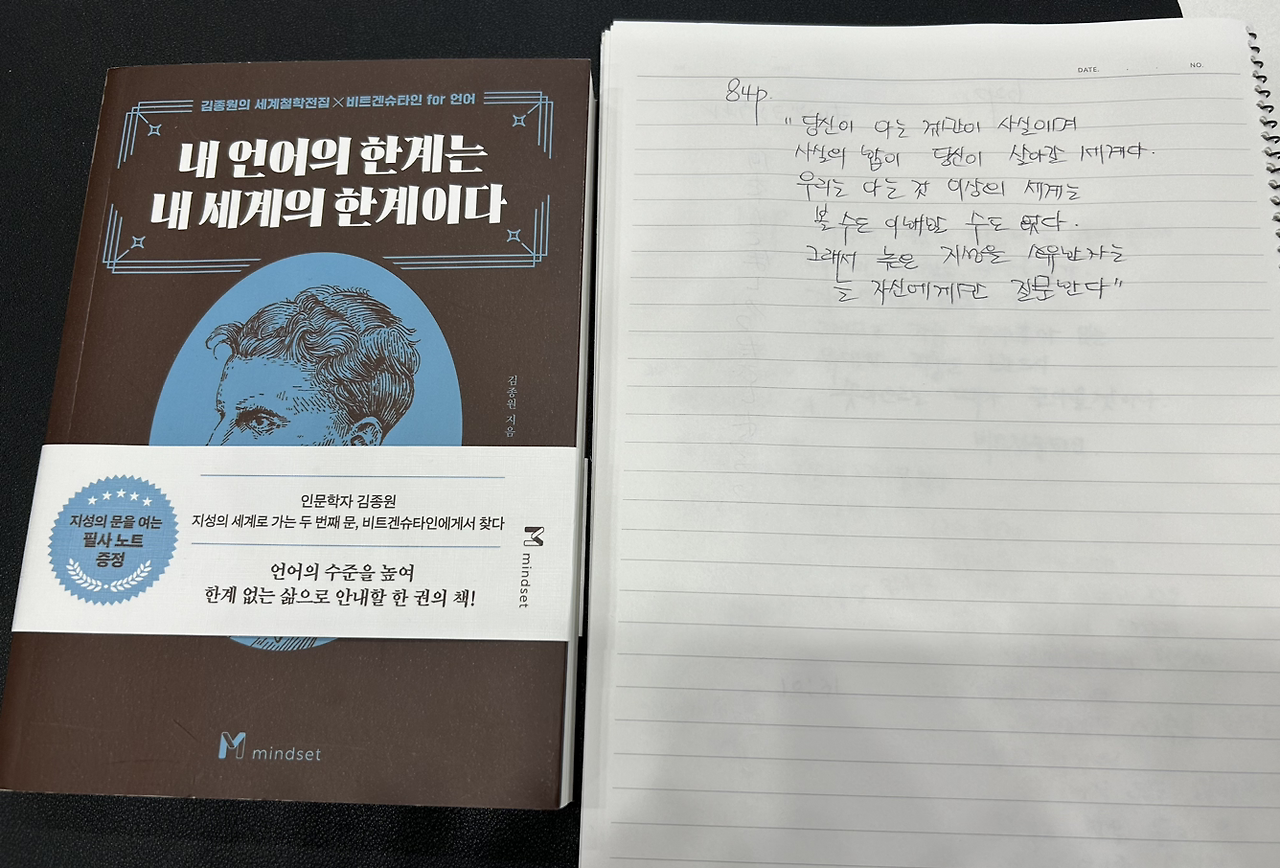 김종원의 세계철학전집×비트겐슈타인 for 언어
내 언어의 한계는
내 세계의 한계이다
김종원 지음
지성의 문을 여는
필사 노트
증정
인문학자 김종원
지성의 세계로 가는 두 번째 문, 비트겐슈타인에게서 찾다
언어의 수준을 높여
한계 없는 삶으로 안내할 한 권의 책!
mindset
mindset
DATE.
NO.
84p.
"당신이 아는 것만이 사실이며
사실의 합이 당신이 살아갈 세계다.
우리는 아는 것 이상의 세계는
볼 수도 이해할 수도 없다.
그래서 높은 지성을 소유한 자는
늘 자신에게만 질문한다"